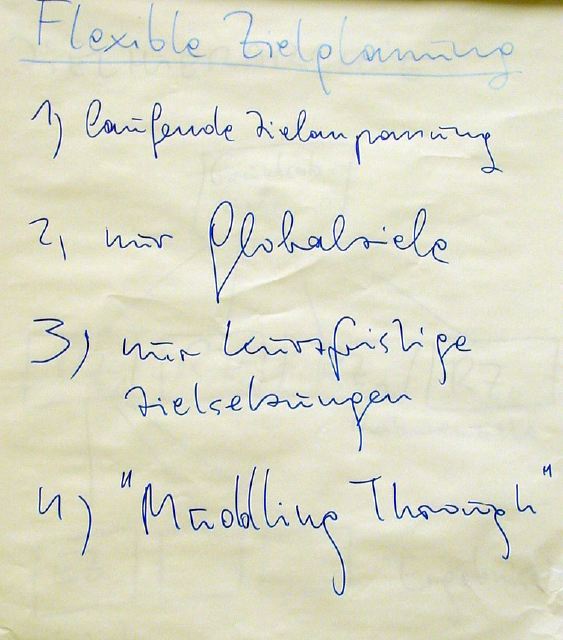 Flexible Zielplanung
1) laufende Zielanpassung
2, nur Globalziele
3) nur kurzfristige
Zielsetzungen
4) "Muddling Through"